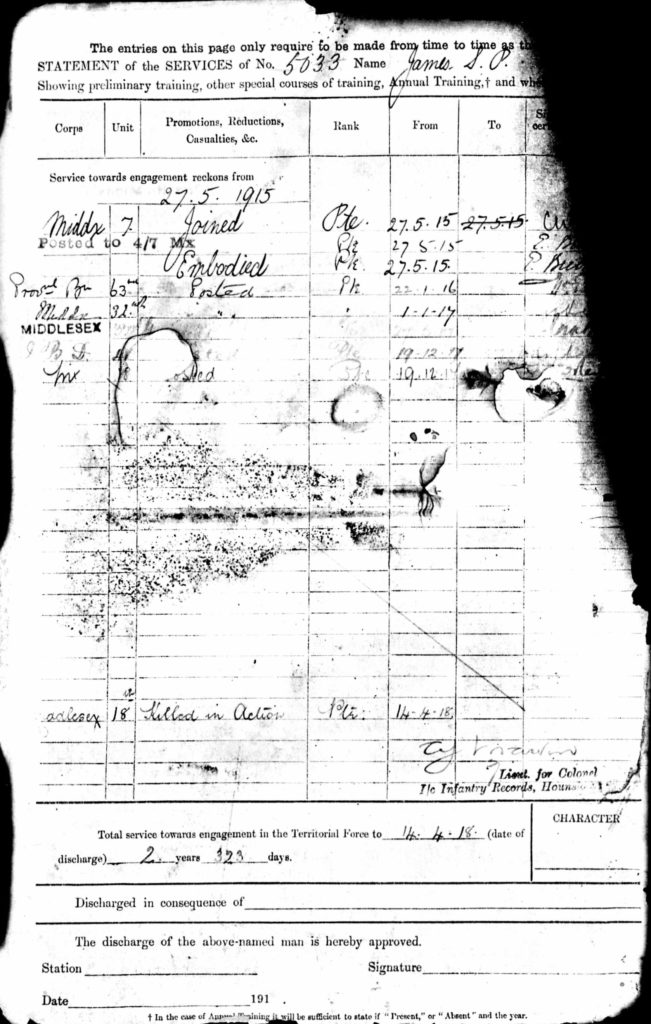 The entries on this page only require to be made from time to time as
STATEMENT of the SERVICES of No. 5033 Name James S. P.
Showing preliminary training, other special courses of training, Annual Training,† and
Corps Unit Promotions, Reductions, Casualties, &c. Rank From To
Service towards engagement reckons from
27.5.1915
Middx 7 Joined Pte. 27.5.15 27.5.15
Posted to 4/7 Mx Pte 27 5.15
Embodied Pte. 27.5.15.
Bn 63rd Posted Pte 22.1.16
Middx 32nd " " 1-1-17
MIDDLESEX
19.12.17
Mx osted 19.12.1
adlesex 18 Killed in Action Pte. 14-4-18
Lieut. for Colonel
I/c Infantry Records, Houns
Total service towards engagement in the Territorial Force to 14.4.18. (date of
discharge) 2 years 323 days.
CHARACTER
Discharged in consequence of
The discharge of the above-named man is hereby approved.
Station Signature
Date 191
† In the case of Annual Training it will be sufficient to state if "Present," or "Absent" and the year.